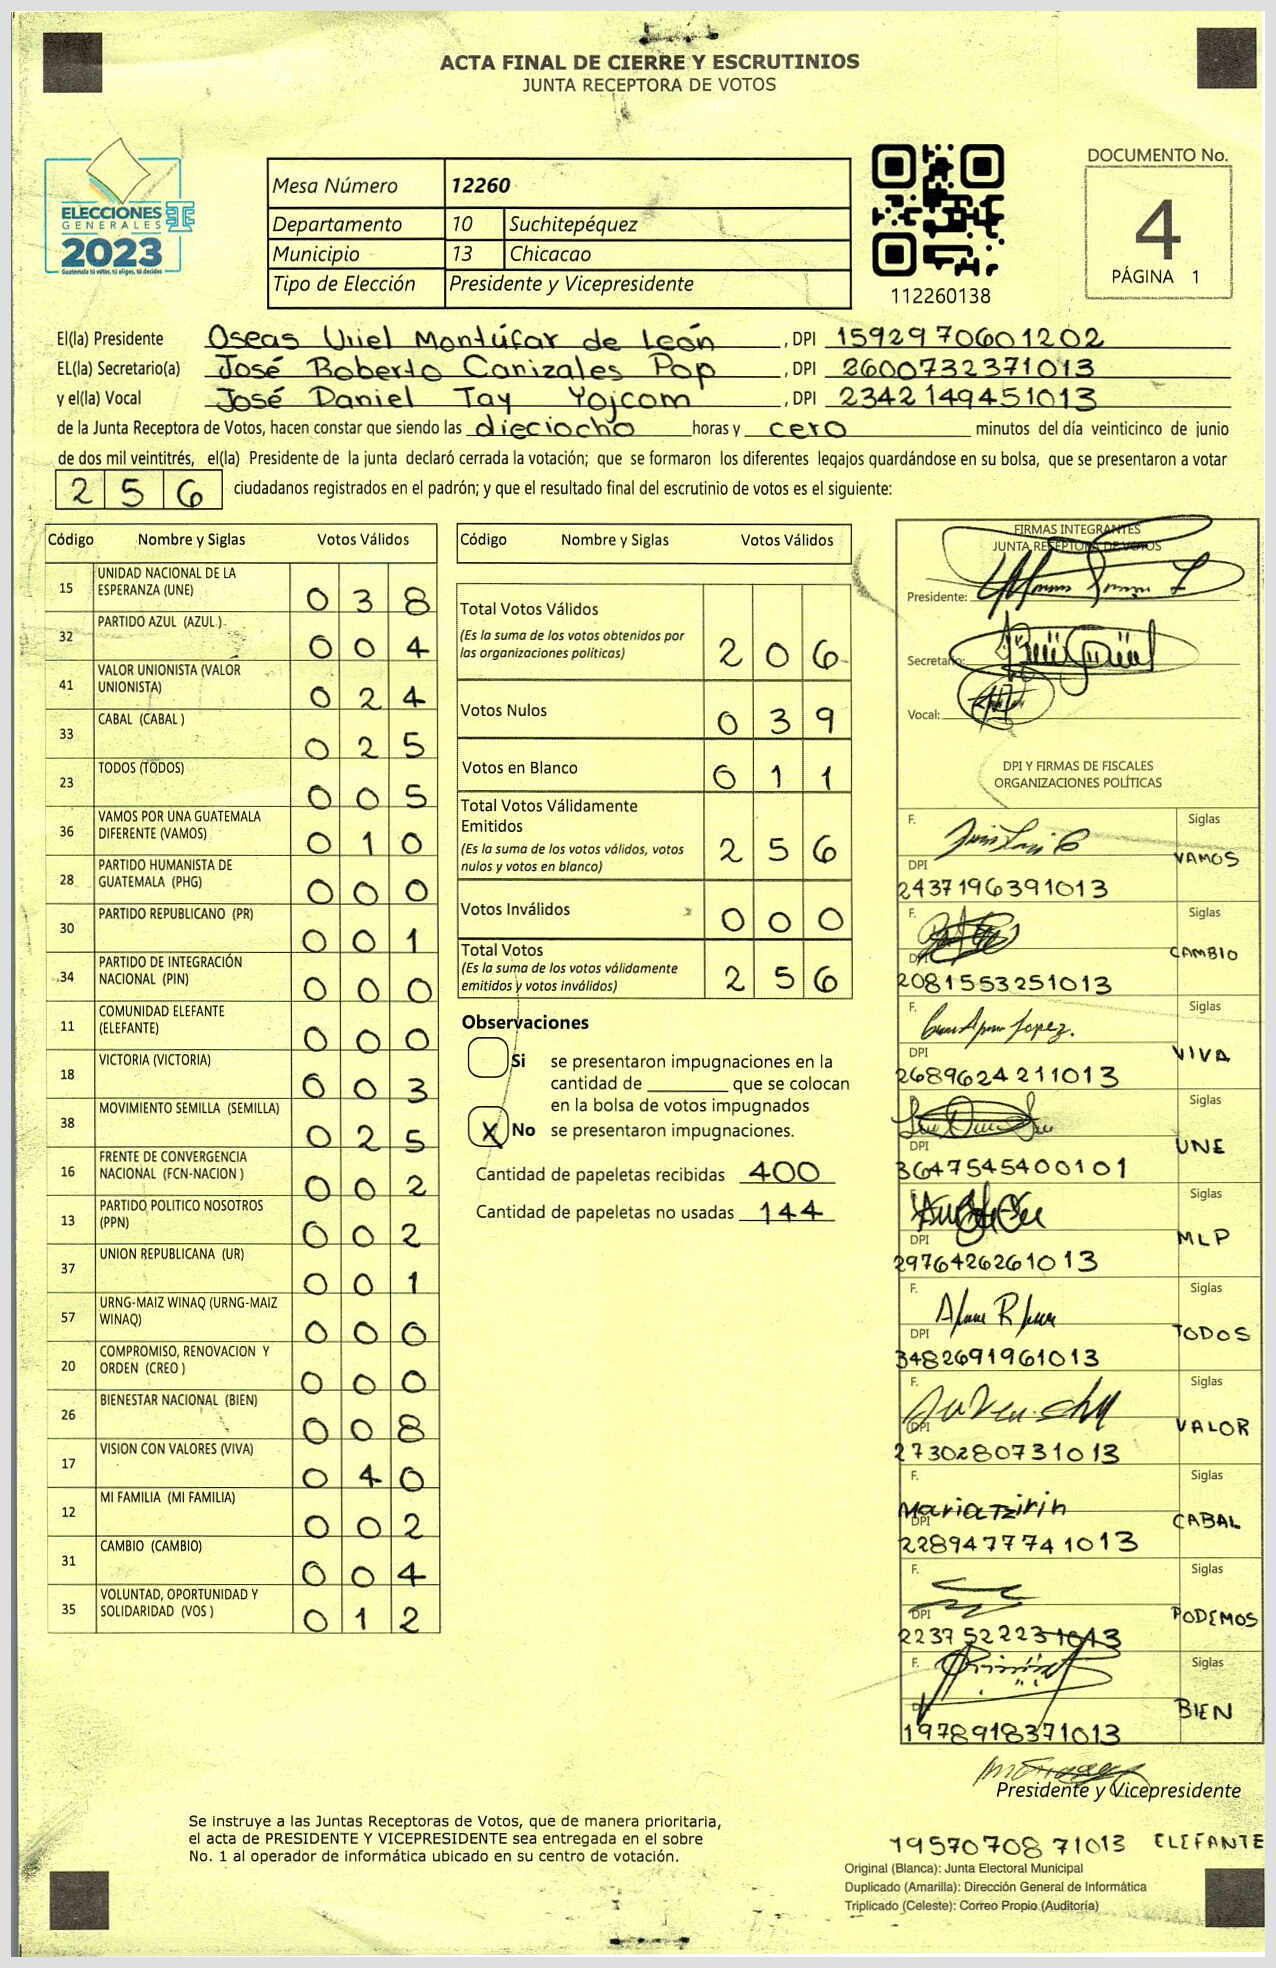 ACTA FINAL DE CIERRE Y ESCRUTINIOS
JUNTA RECEPTORA DE VOTOS
ELECCIONES
GENERALES
2023
Guatemala tú votas, tú eliges, tú decides
Mesa Número 12260
Departamento 10 Suchitepéquez
Municipio 13 Chicacao
Tipo de Elección Presidente y Vicepresidente
112260138
DOCUMENTO No.
4
PÁGINA 1
El(la) Presidente Oseas Uriel Montúfar de León, DPI 1592970601202
EL(la) Secretario(a) José Roberto Canizales Pop, DPI 2600732371013
y el(la) Vocal José Daniel Tay Yojcom, DPI 2342149451013
de la Junta Receptora de Votos, hacen constar que siendo las dieciocho horas y cero minutos del día veinticinco de junio
de dos mil veintitrés, el(la) Presidente de la junta declaró cerrada la votación; que se formaron los diferentes legajos guardándose en su bolsa, que se presentaron a votar
256 ciudadanos registrados en el padrón; y que el resultado final del escrutinio de votos es el siguiente:
Código Nombre y Siglas Votos Válidos
15 UNIDAD NACIONAL DE LA ESPERANZA (UNE) 038
32 PARTIDO AZUL (AZUL ) 004
41 VALOR UNIONISTA (VALOR UNIONISTA) 024
33 CABAL (CABAL ) 025
23 TODOS (TODOS) 005
36 VAMOS POR UNA GUATEMALA DIFERENTE (VAMOS) 010
28 PARTIDO HUMANISTA DE GUATEMALA (PHG) 000
30 PARTIDO REPUBLICANO (PR) 001
34 PARTIDO DE INTEGRACIÓN NACIONAL (PIN) 000
11 COMUNIDAD ELEFANTE (ELEFANTE) 000
18 VICTORIA (VICTORIA) 003
38 MOVIMIENTO SEMILLA (SEMILLA) 025
16 FRENTE DE CONVERGENCIA NACIONAL (FCN-NACION ) 002
13 PARTIDO POLITICO NOSOTROS (PPN) 002
37 UNION REPUBLICANA (UR) 001
57 URNG-MAIZ WINAQ (URNG-MAIZ WINAQ) 000
20 COMPROMISO, RENOVACION Y ORDEN (CREO ) 000
26 BIENESTAR NACIONAL (BIEN) 008
17 VISION CON VALORES (VIVA) 040
12 MI FAMILIA (MI FAMILIA) 002
31 CAMBIO (CAMBIO) 004
35 VOLUNTAD, OPORTUNIDAD Y SOLIDARIDAD (VOS ) 012
Código Nombre y Siglas Votos Válidos
Total Votos Válidos
(Es la suma de los votos obtenidos por
las organizaciones políticas) 206
Votos Nulos 039
Votos en Blanco 011
Total Votos Válidamente
Emitidos
(Es la suma de los votos válidos, votos
nulos y votos en blanco) 256
Votos Inválidos 000
Total Votos
(Es la suma de los votos válidamente
emitidos y votos inválidos) 256
Observaciones
Si se presentaron impugnaciones en la
cantidad de ________ que se colocan
en la bolsa de votos impugnados
X No se presentaron impugnaciones.
Cantidad de papeletas recibidas 400
Cantidad de papeletas no usadas 144
FIRMAS INTEGRANTES
JUNTA RECEPTORA DE VOTOS
Presidente:
Secretario:
Vocal:
DPI Y FIRMAS DE FISCALES
ORGANIZACIONES POLÍTICAS
F. Siglas
DPI VAMOS
2437196391013
F. Siglas
DPI CAMBIO
2081553251013
F. Siglas
DPI VIVA
2689624211013
F. Siglas
DPI UNE
3647545400101
F. Siglas
DPI MLP
2976426261013
F. Siglas
DPI TODOS
3482691961013
F. Siglas
DPI VALOR
2730280731013
F. Siglas
Maria Tzirin
DPI CABAL
2289477741013
F. Siglas
DPI PODEMOS
2237522231013
F. Siglas
DPI BIEN
1978918371013
Presidente y Vicepresidente
1957070871013 ELEFANTE
Se instruye a las Juntas Receptoras de Votos, que de manera prioritaria,
el acta de PRESIDENTE Y VICEPRESIDENTE sea entregada en el sobre
No. 1 al operador de informática ubicado en su centro de votación.
Original (Blanca): Junta Electoral Municipal
Duplicado (Amarilla): Dirección General de Informática
Triplicado (Celeste): Correo Propio (Auditoría)